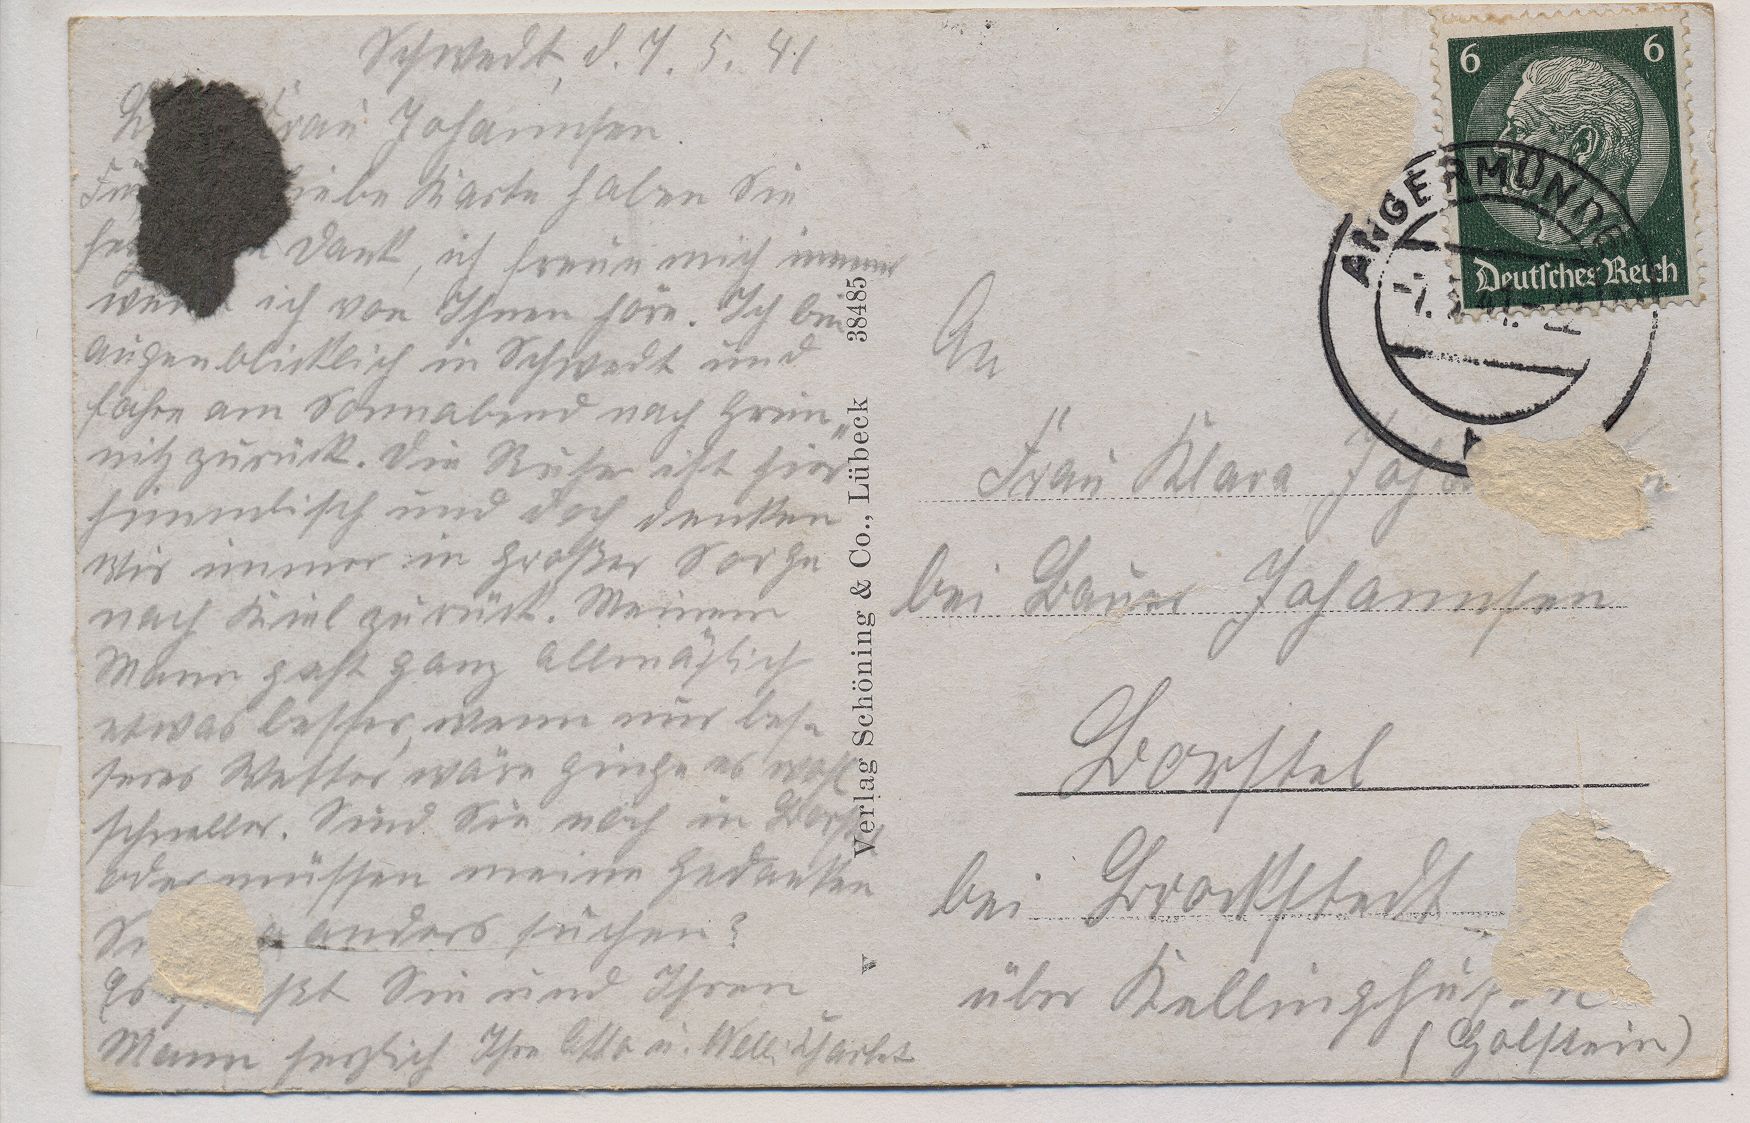 Schwedt, d. 7. 5. 41
Frau Johannsen.
liebe Karte haben Sie
Dank, ich freue mich immer
wenn ich von Ihnen höre. Ich bin
augenblicklich in Schwedt und
fahre am Sonnabend nach Greif„
nitz zurück. Die Ruhe ist hier
himmlisch und doch denken
wir immer in großer Sorge
nach Kiel zurück. Meinem
Mann geht ganz allmählich
etwas besser, wenn nur bes-
seres Wetter wäre ginge es wohl
schneller. Sind Sie noch in Borstel
oder müssen meine Gedanken
anders suchen?
Es Sie und Ihren
Mann herzlich Ihre Otto u.
Verlag Schöning & Co., Lübeck 38485
V
6 6
Deutsches Reich
ANGERMÜNDE
An
Frau Klara
bei Bauer Johannsen
Borstel
bei Brockstedt
über Kellinghusen
(Holstein)